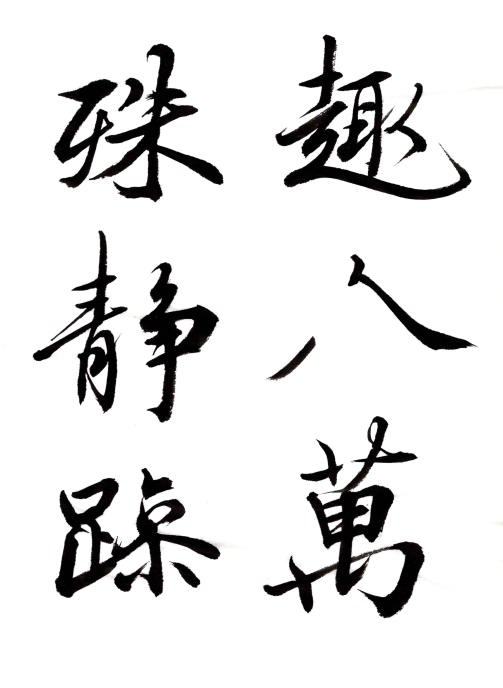 趣八萬
殊静躁